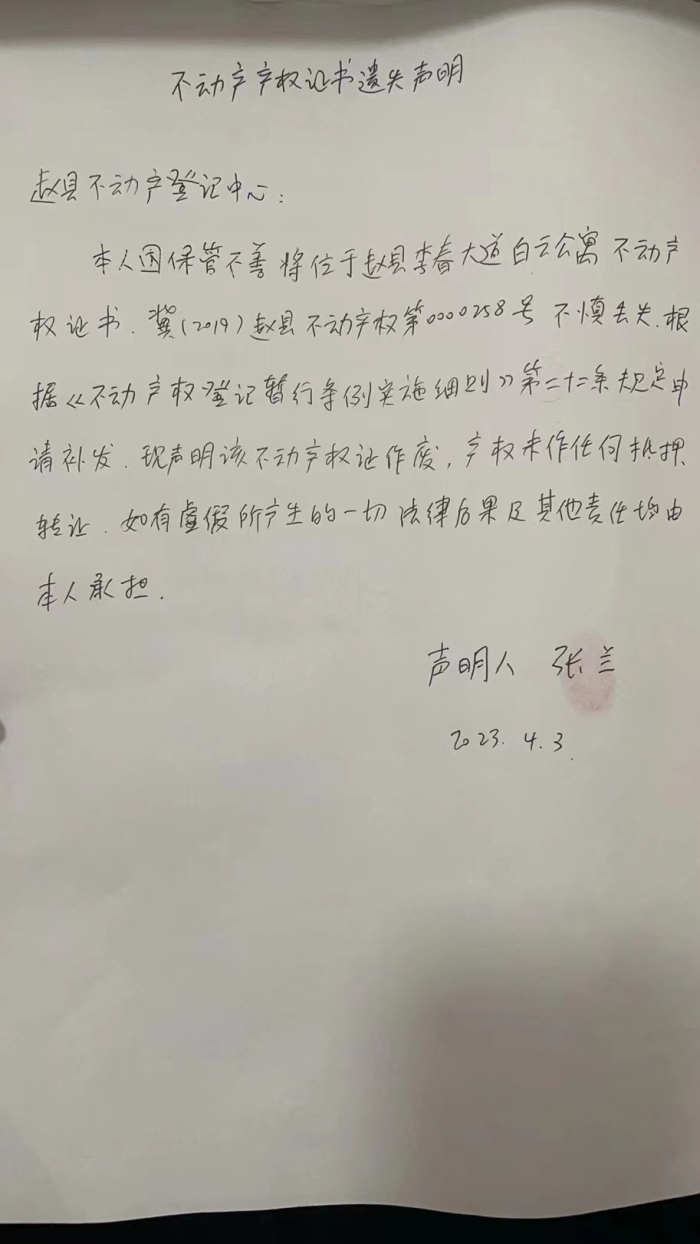 不动产产权证书遗失声明
赵县不动产登记中心:
本人因保管不善将位于赵县李春大道白云公寓不动产
权证书.冀(2019)赵县不动产权第0000258号不慎丢失.根
据《不动产权登记暂行条例实施细则》第二十二条规定申
请补发.现声明该不动产权证作废,产权未作任何抵押
转让.如有虚假所产生的一切法律后果及其他责任均由
本人承担.
声明人 张兰
2023.4.3.